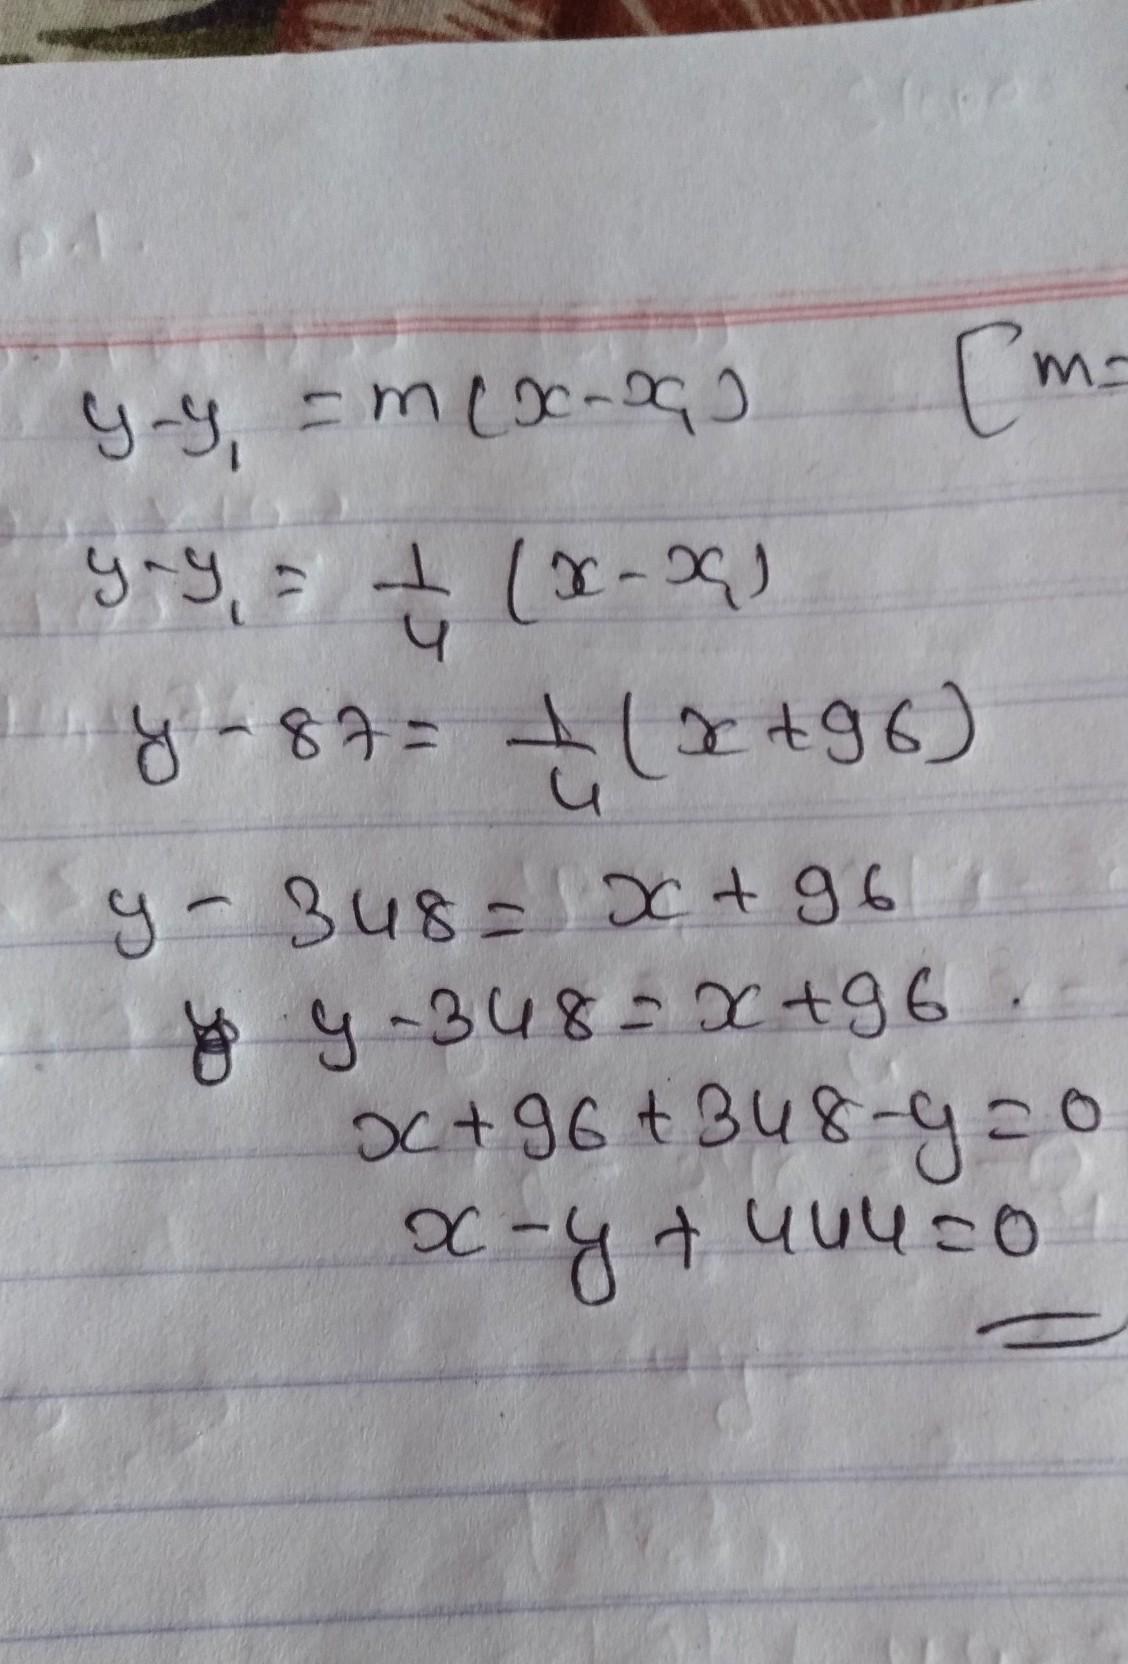 y-y₁ = m(x-x₁) [m=
y-y₁ = 1/4 (x-x₁)
y-87= 1/4 (x+96)
y-348= x+96
y-348=x+96.
x+96+348-y=0
x-y+444=0